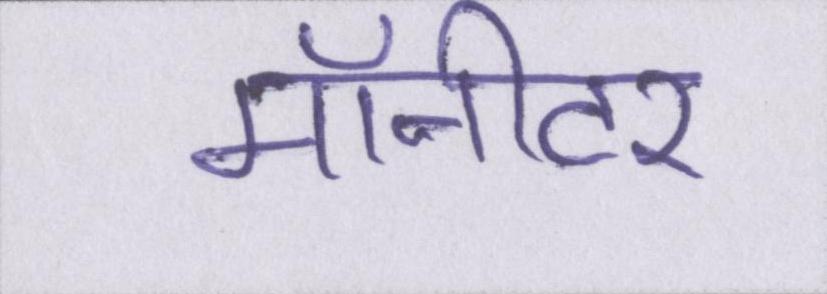 मॉनीटर